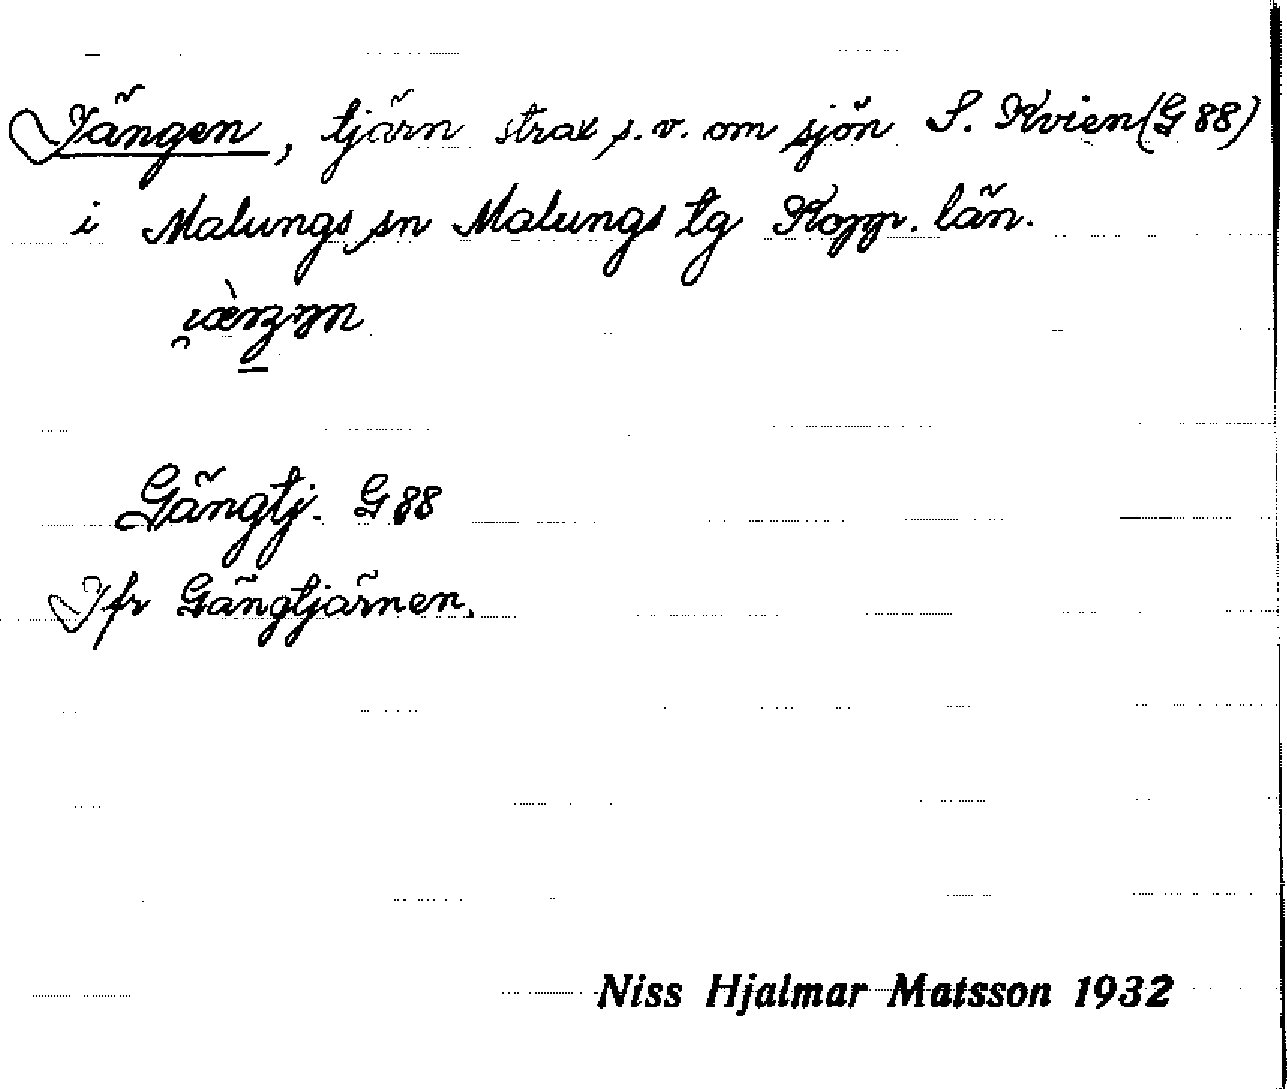 Jängen, tjärn strax s.v. om sjön S. Kvien (G 88)
i Malungs sn Malungs tg Kopp. län.
Gängtj. G 88
Jfr Gängtjärnen.
Niss Hjalmar Matsson 1932